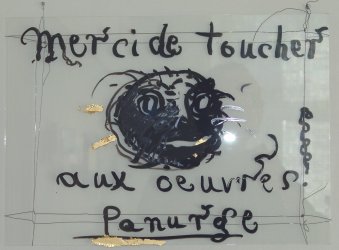 mercide toucher
aux oeuvres.
Panurge